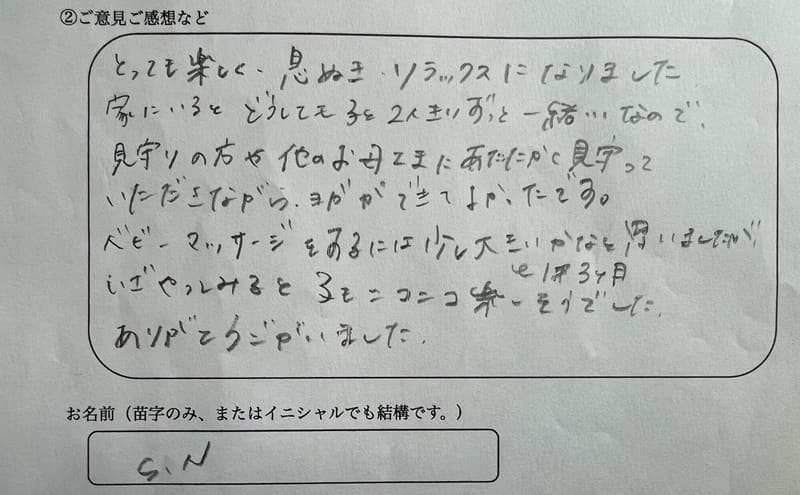 ②ご意見ご感想など
とっても楽しく、息ぬき、リラックスになりました
家にいるとどうしても子と2人きりずっと一緒いなので、
見守りの方や他のお母さまにあたたかく見守って
いただきながら、ヨガができてよかったです。
ベビーマッサージをするには少し大きいかなと思いましたが、
1才3ヶ月
いざやってみると子もニコニコ楽しそうでした。
ありがとうございました。
お名前（苗字のみ、またはイニシャルでも結構です。）
S.N